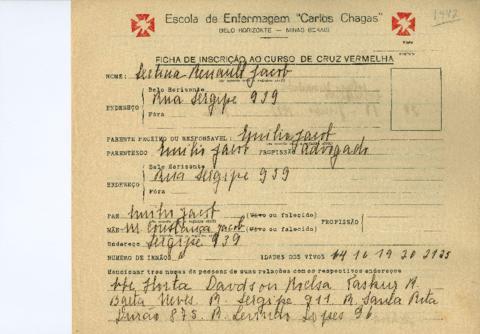 Escola de Enfermagem "Carlos Chagas"
BELO HORIZONTE — MINAS GERAIS
1942
FICHA DE INSCRIÇÃO AO CURSO DE CRUZ VERMELHA
NOME: Renault Jacob
Belo Horizonte
Rua Sergipe 939
ENDEREÇO
Fóra
PARENTE PROXIMO OU RESPONSAVEL: Emilio Jacob
PARENTESCO Emilio Jacob PROFISSÃO Advogado
Belo Horizonte
Rua Sergipe 939
ENDEREÇO
Fóra
PAE Emilio Jacob (Vivo ou falecido) PROFISSÃO
MÃE M. Constança Jacob (Vivo ou falecido)
Endereço Sergipe 939
NUMERO DE IRMÃOS IDADES DOS VIVOS 14 16 19 20 21 23
Mencionar tres nomes de pessoas de suas relações com os respectivos endereços
Horta Davidson Nielsa R.
Baeta Neves. R. Sergipe 911. R. Santa Rita
Durão 873. R. Levindo Lopes 96